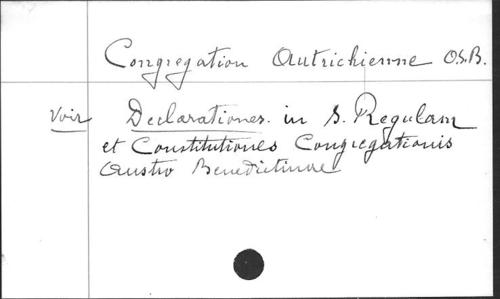 Congregation Autrichienne O.S.B.
Voir Declarationes in S. Regulam
et Constitutiones Congregationis
Austro Benedictinae